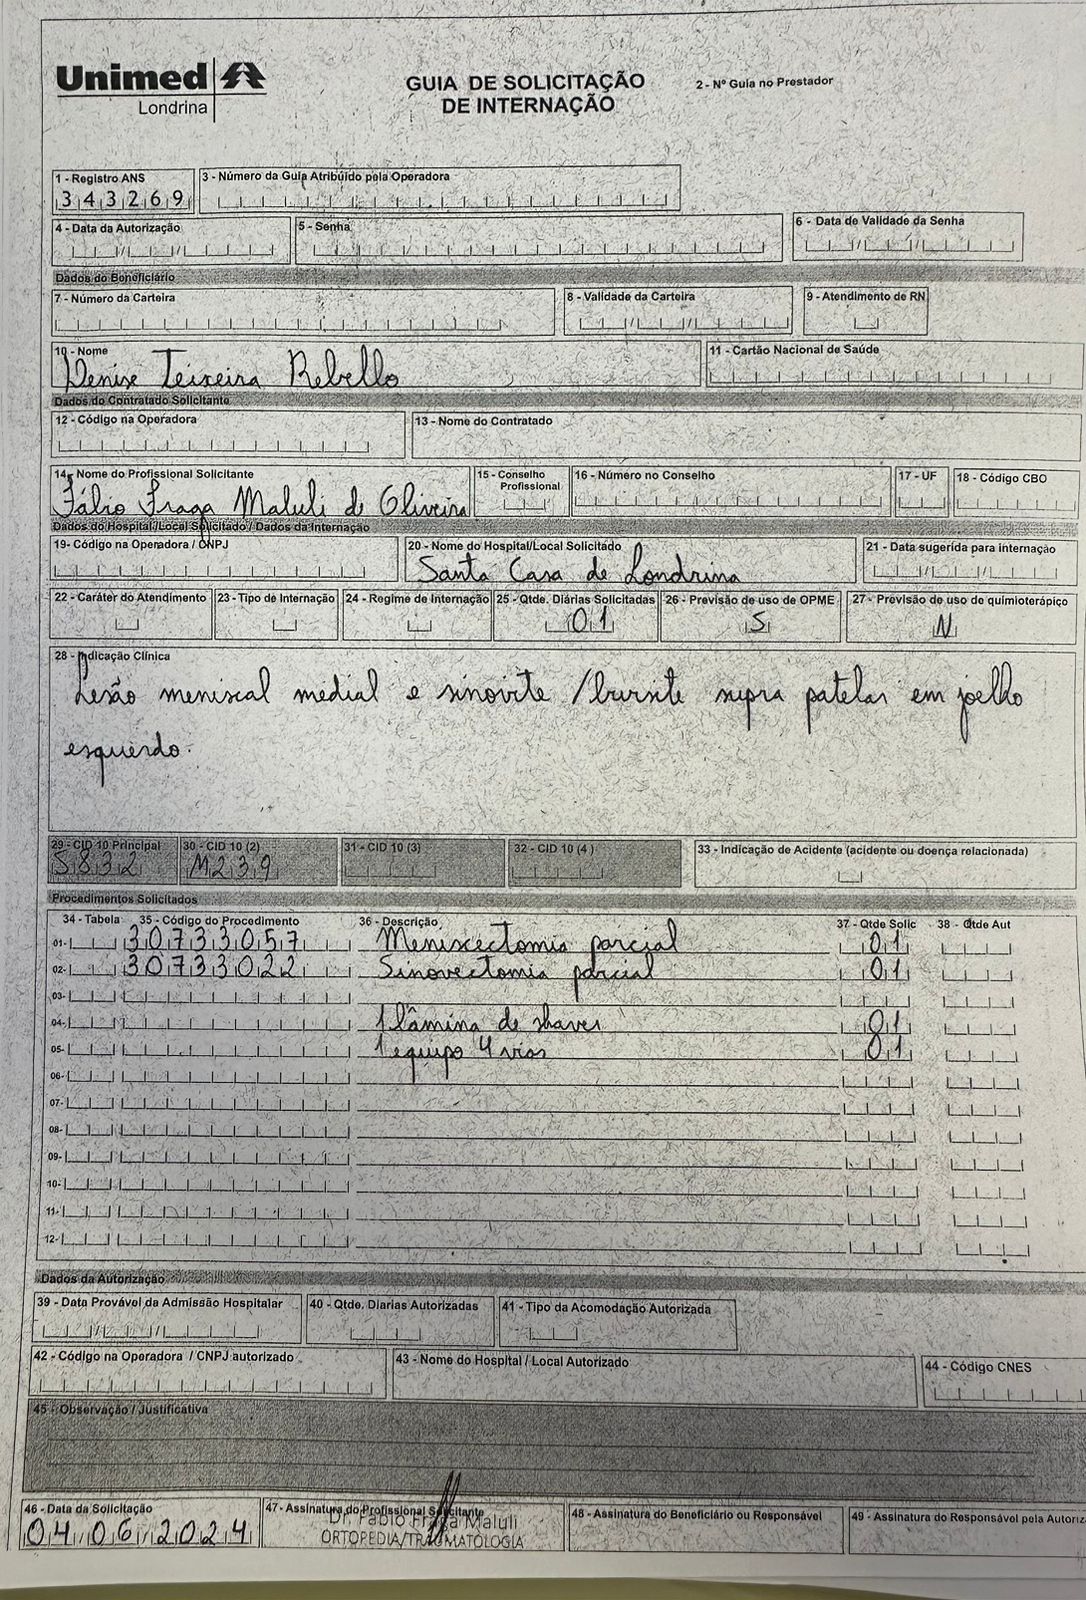 Unimed
Londrina
GUIA DE SOLICITAÇÃO
DE INTERNAÇÃO
2 - Nº Guia no Prestador
1 - Registro ANS
343269
3 - Número da Guia Atribuído pela Operadora
4 - Data da Autorização
5 - Senha
6 - Data de Validade da Senha
Dados do Beneficiário
7 - Número da Carteira
8 - Validade da Carteira
9 - Atendimento de RN
10 - Nome
Denise Teixeira Rebello
11 - Cartão Nacional de Saúde
Dados do Contratado Solicitante
12 - Código na Operadora
13 - Nome do Contratado
14 - Nome do Profissional Solicitante
Fábio Fraga Maluli de Oliveira
15 - Conselho Profissional
16 - Número no Conselho
17 - UF
18 - Código CBO
Dados do Hospital/Local Solicitado / Dados da Internação
19- Código na Operadora / CNPJ
20 - Nome do Hospital/Local Solicitado
Santa Casa de Londrina
21 - Data sugerida para internação
22 - Caráter do Atendimento
23 - Tipo de Internação
24 - Regime de Internação
25 - Qtde. Diárias Solicitadas
01
26 - Previsão de uso de OPME
S
27 - Previsão de uso de quimioterápico
N
28 - Indicação Clínica
Lesão meniscal medial e sinovite /bursite supra patelar em joelho
esquerdo.
29 - CID 10 Principal
S832
30 - CID 10 (2)
M239
31 - CID 10 (3)
32 - CID 10 (4 )
33 - Indicação de Acidente (acidente ou doença relacionada)
Procedimentos Solicitados
34 - Tabela 35 - Código do Procedimento 36 - Descrição 37 - Qtde Solic 38 - Qtde Aut
01- 30733057 Meniscectomia parcial 01
02- 30733022 Sinovectomia parcial 01
03-
04- 1 lâmina de shaver 01
05- 1 equipo 4 vias 01
06-
07-
08-
09-
10-
11-
12-
Dados da Autorização
39 - Data Provável da Admissão Hospitalar
40 - Qtde. Diarias Autorizadas
41 - Tipo da Acomodação Autorizada
42 - Código na Operadora / CNPJ autorizado
43 - Nome do Hospital / Local Autorizado
44 - Código CNES
45 - Observação / Justificativa
46 - Data da Solicitação
04/06/2024
47 - Assinatura do Profissional Solicitante
Dr. Fábio Fraga Maluli
ORTOPEDIA/TRAUMATOLOGIA
48 - Assinatura do Beneficiário ou Responsável
49 - Assinatura do Responsável pela Autoriz